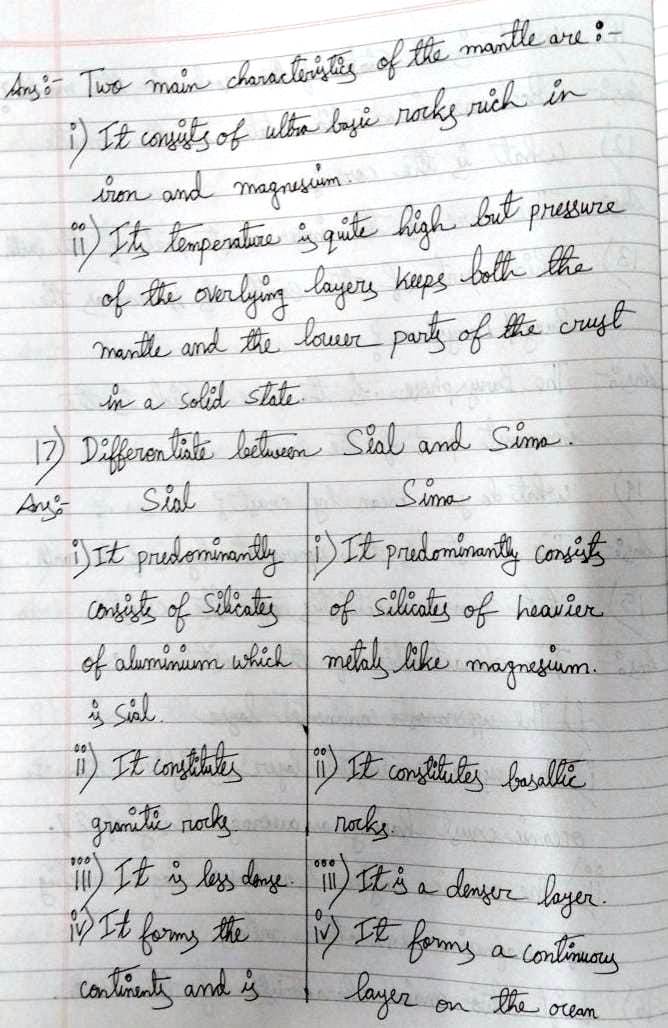 Ans:- Two main characteristics of the mantle are :-
i) It consists of ultra basic rocks rich in
iron and magnesium.
ii) Its temperature is quite high but pressure
of the overlying layers keeps both the
mantle and the lower parts of the crust
in a solid state.
17) Differentiate between Sial and Sima.
Ans:- Sial
i) It predominantly
consists of Silicates
of aluminium which
is Sial.
ii) It constitutes
granitic rocks.
iii) It is less dense.
iv) It forms the
continents and is
Sima
i) It predominantly consists
of silicates of heavier
metals like magnesium.
ii) It constitutes basaltic
rocks.
iii) It is a denser layer.
iv) It forms a continuous
layer on the ocean